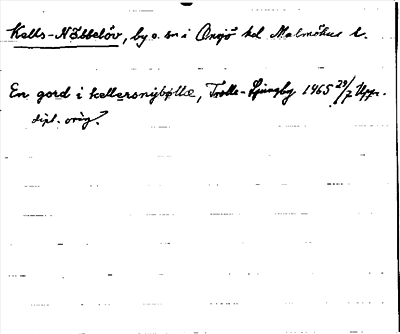 Källs-Nöbbelöv, by o. sn i Onsjö hd Malmöhus l.
En gord i kellersnybøllæ, Trolle-Ljungby 1465 29/7 Uppr.
dipl. orig.